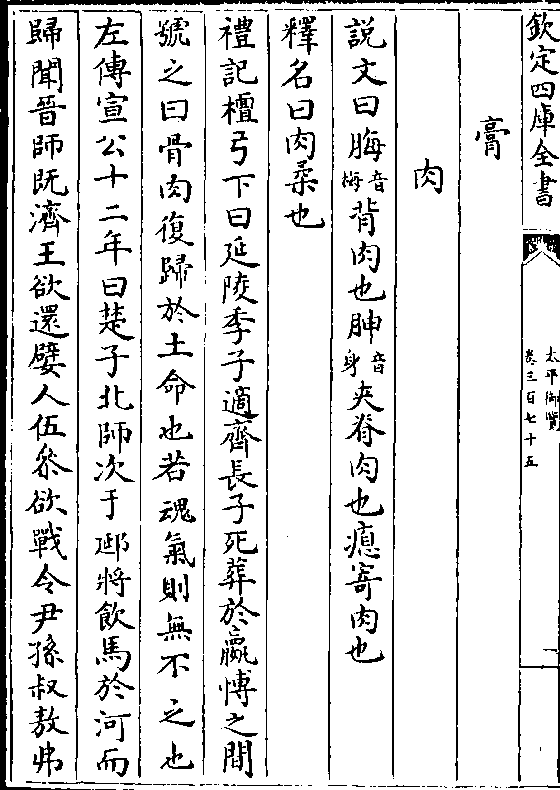 欽定四庫全書
太平御覽
卷三百七十五
一
膏
肉
説文曰脢音梅背肉也胂音身夾脊肉也瘜寄肉也
釋名曰肉柔也
禮記檀弓下曰延陵季子適齊長子死葬於嬴博之間
號之曰骨肉復歸於土命也若魂氣則無不之也
左傳宣公十二年曰楚子北師次于郔將飲馬於河而
歸聞晉師既濟王欲還嬖人伍參欲戰令尹孫叔敖弗